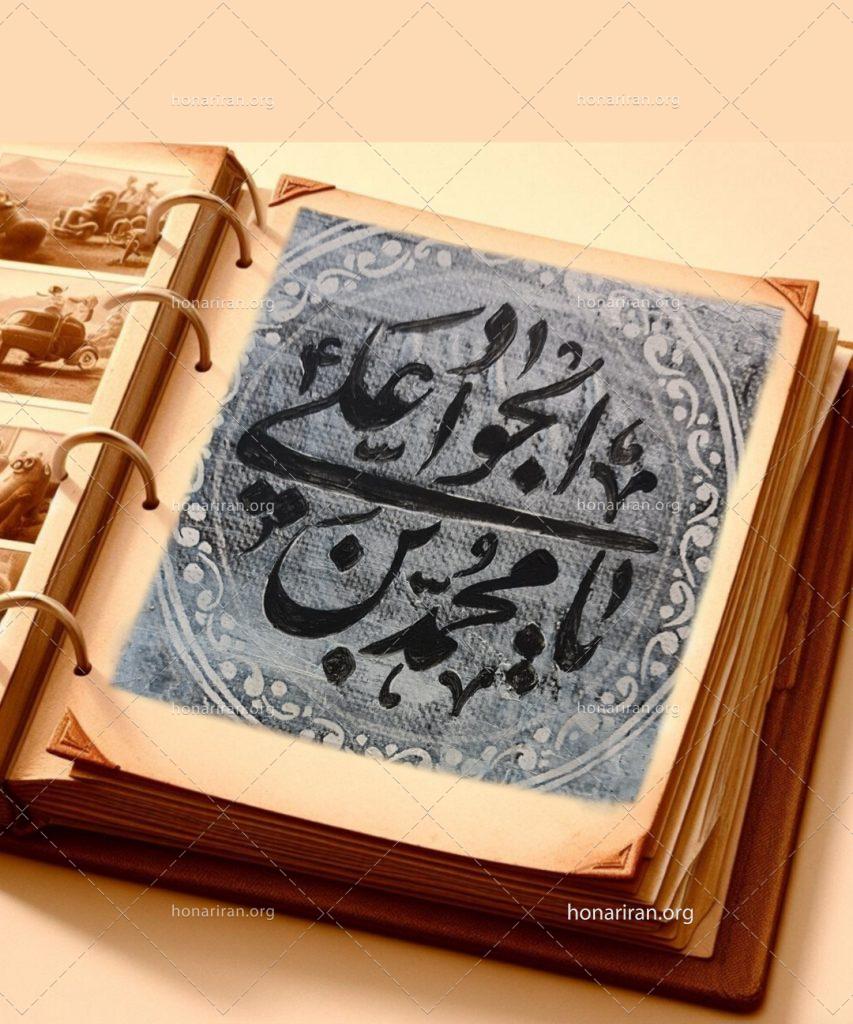 honariran.org honariran.org
honariran.org honariran.org
یا محمّد بن
علی الجواد
honariran.org honariran.org
honariran.org honariran.org
honariran.org honariran.org